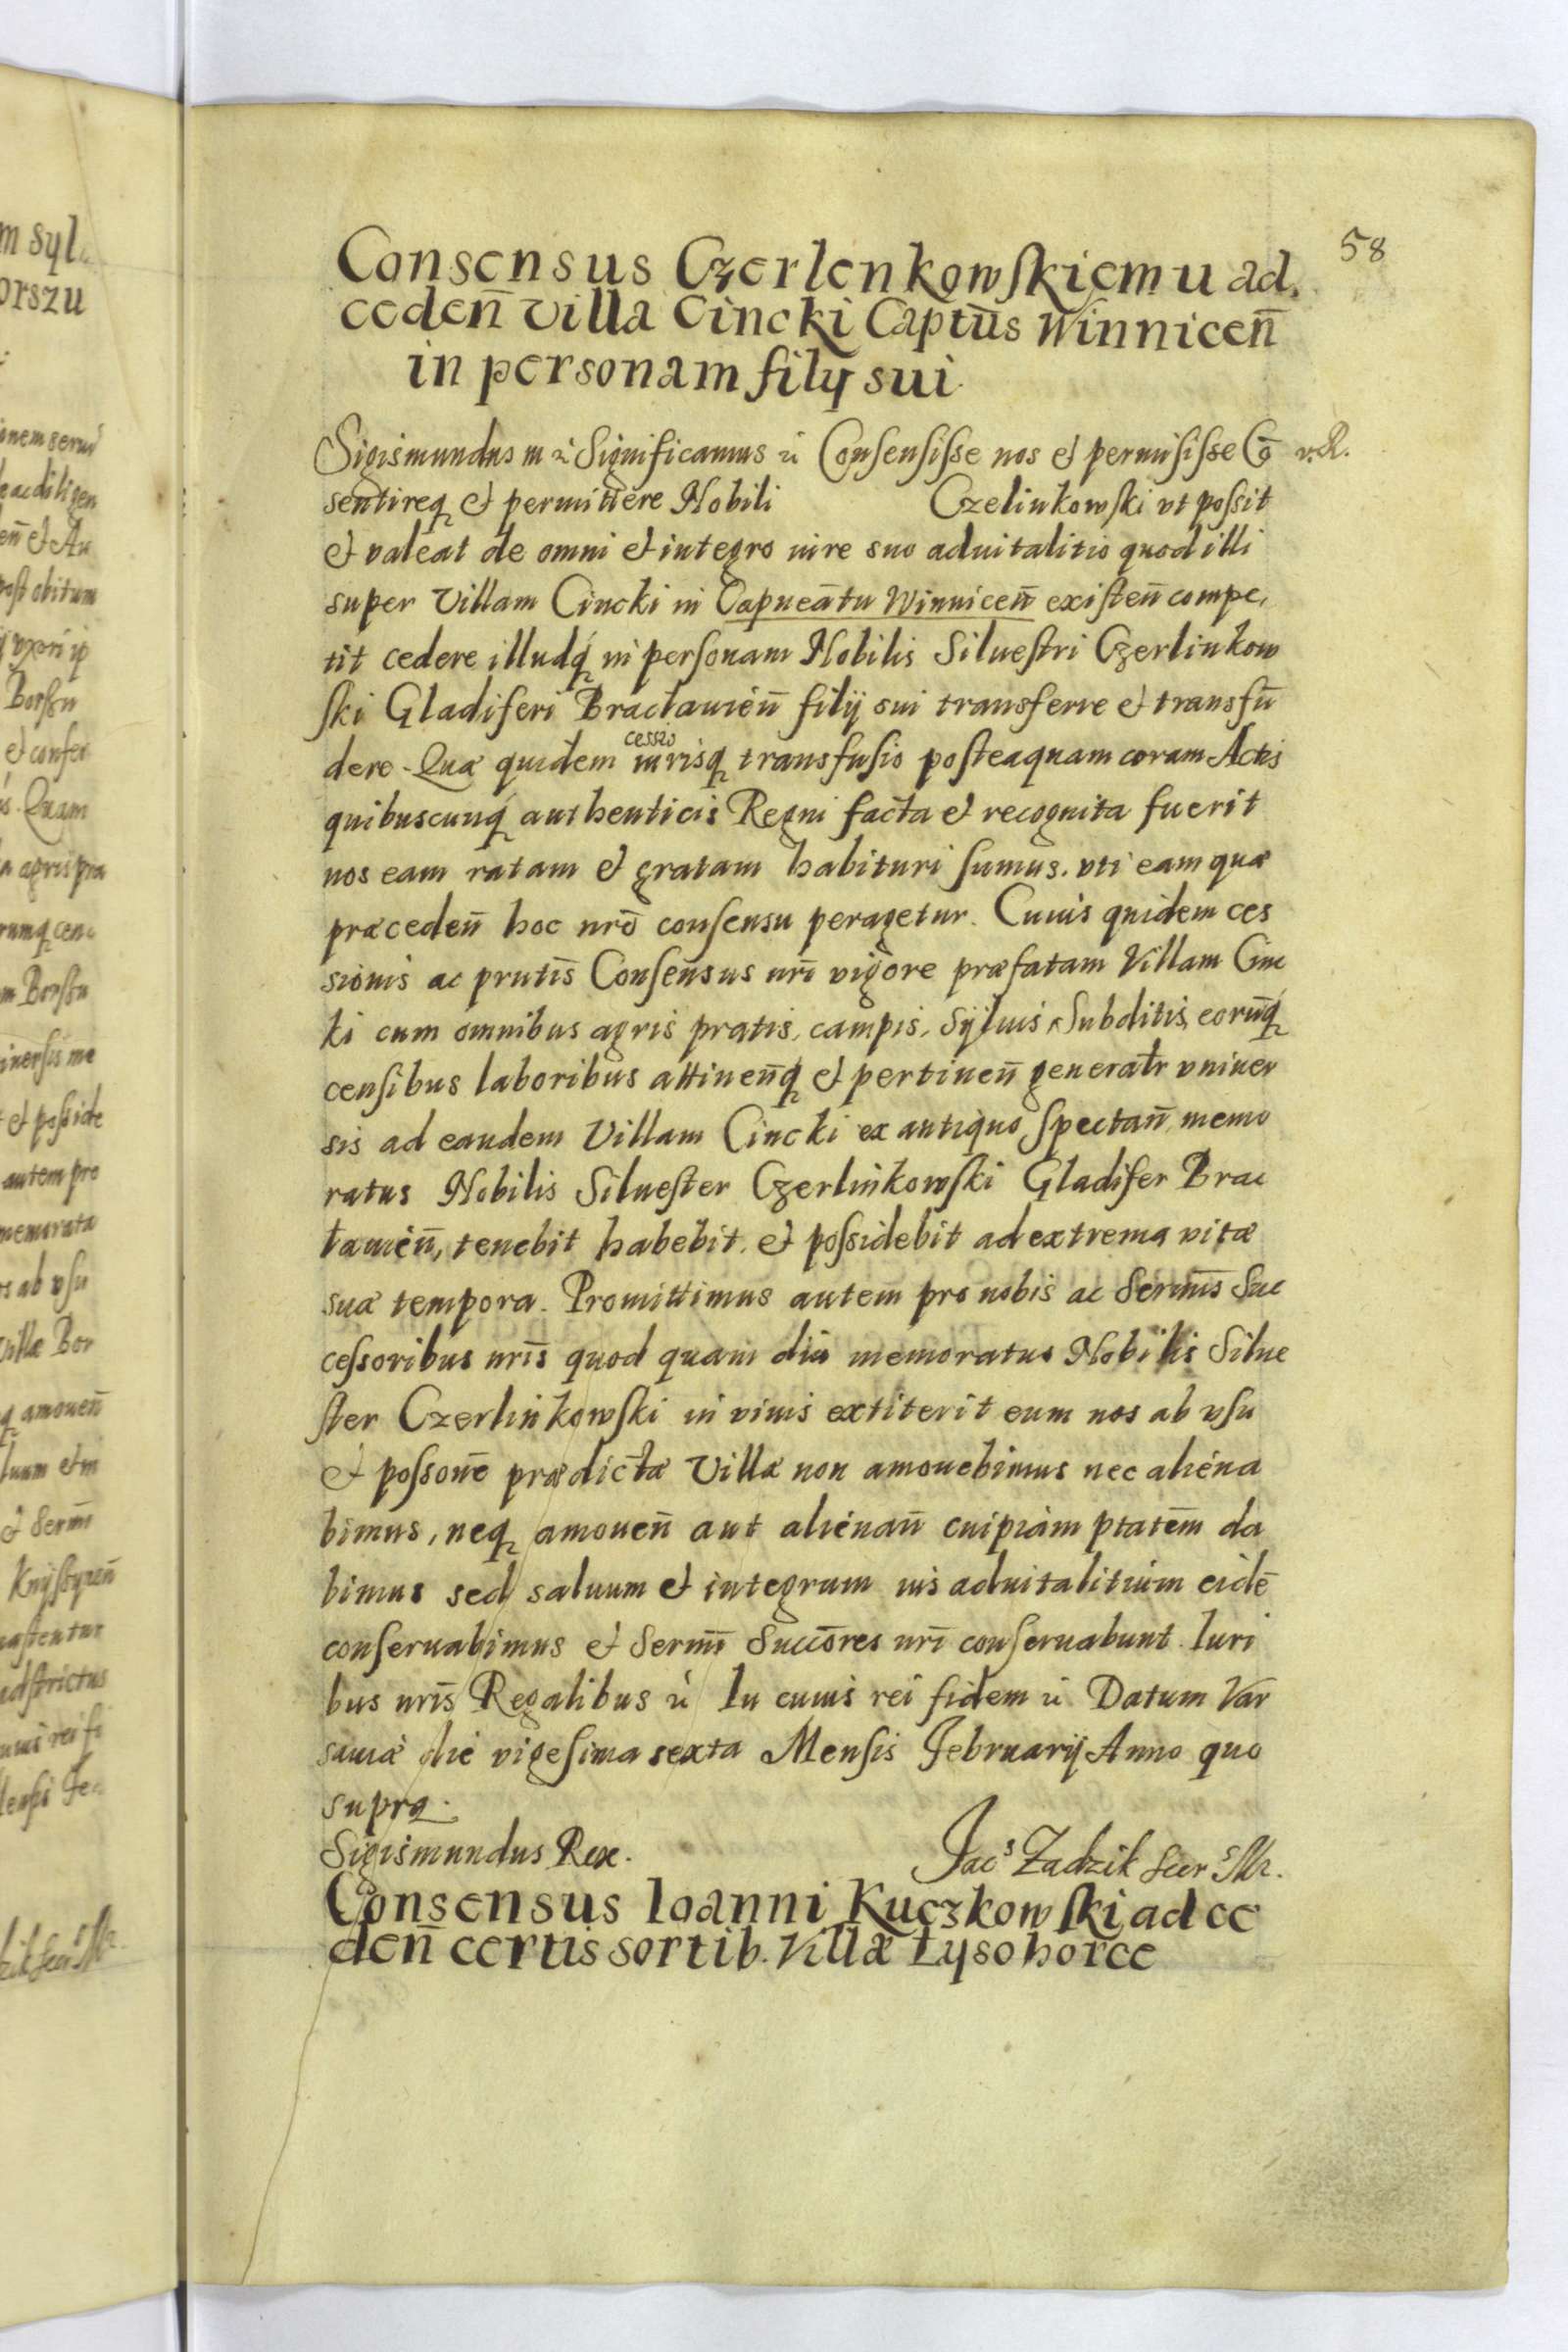 58
Consensus Czerlenkowskiemu ad
ceden̄ villa Cincki Capt̄us Winnicen̄
in personam filij sui.
Sigismundus III &c Significamus &c Consensisse nos et permisisse Cō
sentireq́ et permittere Nobili Czelinkowski vt possit
et valeat de omni et integro iure suo aduitalitio quod illi
super Villam Cincki in Capneātu Winnicen̄ existen̄ compe,
tit cedere illudq́ in personam Nobilis Siluestri Czerlinkow
ski Gladiferi Bracłauien̄ filij sui transferre et transfū
dere. Quæ quidem cessio iurisq́ transfusio posteaquam coram Actis
quibuscunq́ authenticis Regni facta et recognita fuerit
nos eam ratam et gratam habituri sumus. vti eam quæ
præceden̄ hoc nrō consensu peragetur. Cuuis quidem ces
sionis ac prntis̄ Consensus nrī vigore præfatam Villam Cinc
ki cum omnibus agris pratis, campis, Syluis, Subditis, eorun̄q́
censibus laboribus attinen̄q́ et pertinen̄ generalr vniuer
sis ad eandem Villam Cincki ex antiquo spectan̄ memo
ratus Nobilis Siluester Czerlinkowski Gladifer Brac
łauien̄, tenebit habebit, et possidebit ad extrema vitæ
suæ tempora. Promittimus autem pro nobis ac Serm̄is Suc
cessoribus nrīs quod quam diu memoratus Nobilis Silue
ster Czerlinkowski in viuis extiterit eum nos ab vsu
et possonē prædictæ Villæ non amouebimus nec aliena
bimus, neq́ amouen̄ aut alienan̄ cuipiam ptatem̄ da
bimus sed saluum et integrum ius aduitalitium eidē
conseruabimus et Serm̄i Succōres nrī conseruabunt. Iuri
bus nrīs Regalibus &c In cuius rei fidem &c Datum Var
sauiæ die vigesima sexta Mensis Februarij Anno quo
supra.
Sigismundus Rex.
Jac͛s Zadzik Secr͛s Mr.
Consensus Ioanni Kuczkowski ad ce
den̄ certis sortib. Villæ Łysohorce